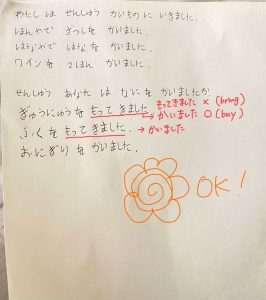 わたし は せんしゅう かいものに いきました。
ほんやで ざっしを かいました。
はなやで はなを かいました。
ワインを 2ほん かいました。
せんしゅう あなた は なにを かいましたか
もってきました × (bring)
ぎゅうにゅうを もって きました → かいました ○ (buy)
ふくを もって きました. → かいました
おにぎりを かいました。
OK!